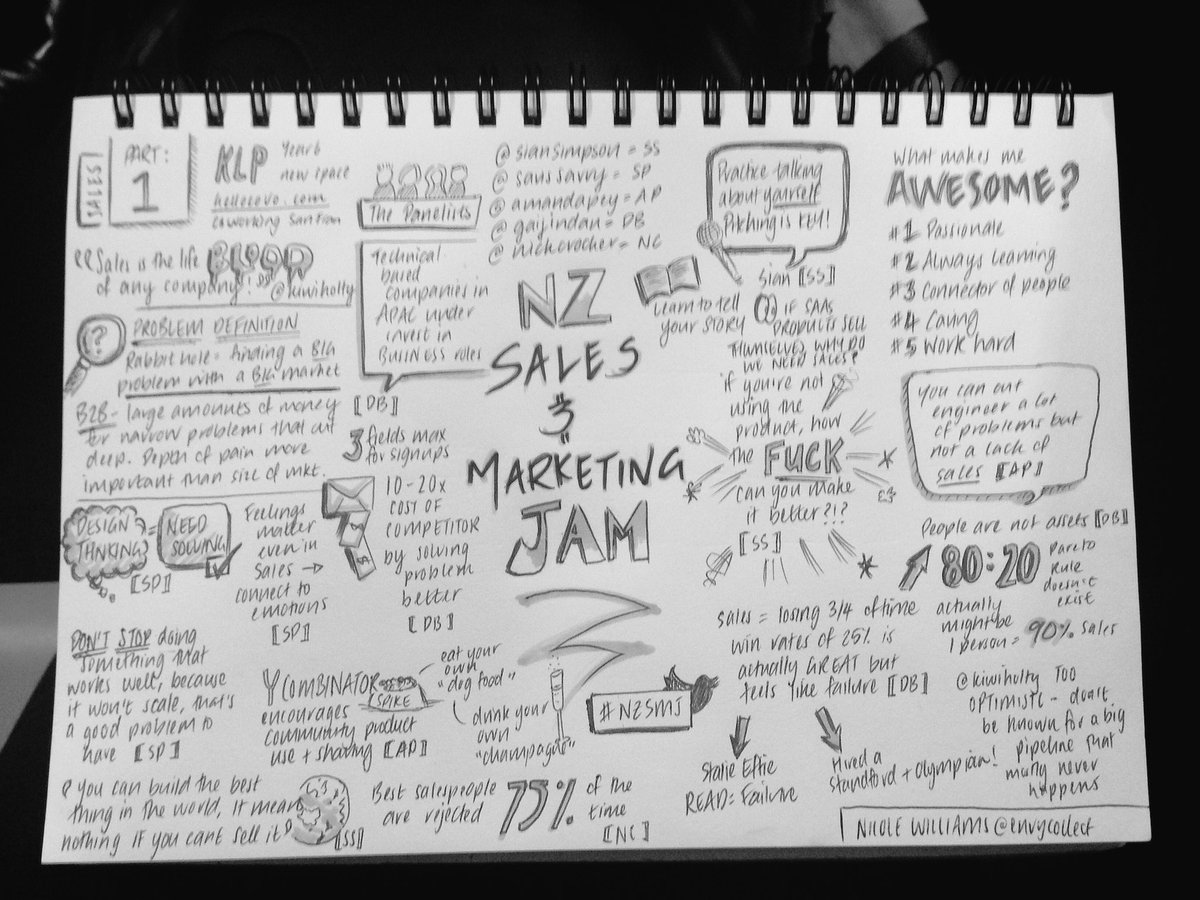 SALES
PART:
1
KLP
Year 6
new space
coworking San Fran
The Panelists
@siansimpson = SS
@sanssavvy = SP
@amandapey = AP
@gaijindan = DB
@nickcrocher = NC
Practice talking
about yourself
Pitching is KEY!
Sian [SS]
What makes me
AWESOME?
#1 Passionate
#2 Always Learning
#3 Connector of people
#4 Caring
#5 Work hard
"Sales is the life BLOOD
of any company!" @kiwiholty
?
PROBLEM DEFINITION
Rabbit hole = finding a BIG
problem with a BIG market
B2B - large amounts of money
for narrow problems that cut
deep. Depth of pain more
important than size of mkt.
Technical
based
companies in
APAC under
invest in
BUSINESS roles
[DB]
3 fields max
for signups
NZ
SALES
&
MARKETING
JAM
Learn to tell
your STORY
Q IF SAAS
PRODUCTS SELL
THEMSELVES, WHY DO
WE NEED SALES?
if you're not
using the
product, how
the FUCK
can you make
it better?!?
[SS]
You can out
engineer a lot
of problems but
not a lack of
sales [AP]
DESIGN
THNKING
=
NEED
SOLVING
[SP]
Feelings
matter
even in
sales →
connect to
emotions
[SP]
10-20x
COST OF
COMPETITOR
by solving
problem
better
[DB]
People are not assets [DB]
80:20
Pareto
Rule
doesn't
exist
actually
might be
1 person = 90% sales
DON'T STOP doing
something that
works well, because
it won't scale, that's
a good problem to
have [SP]
YCOMBINATOR
encourages
community product
use + sharing [AP]
SPIKE
eat your
own
"dog food"
drink your
own
"champagne"
#NZSMJ
sales = losing 3/4 of time
win rates of 25% is
actually GREAT but
feels like failure [DB]
Statie Effie
READ = Failure
Hired a
Standford + Olympian!
@kiwiholty TOO
OPTIMISTIC - don't
be known for a big
pipeline that
mainly never
happens
you can build the best
thing in the world, it mean
nothing if you cant sell it
[SS]
Best salespeople
are rejected
75%
of the
time
[NC]
NICOLE WILLIAMS @envycollect